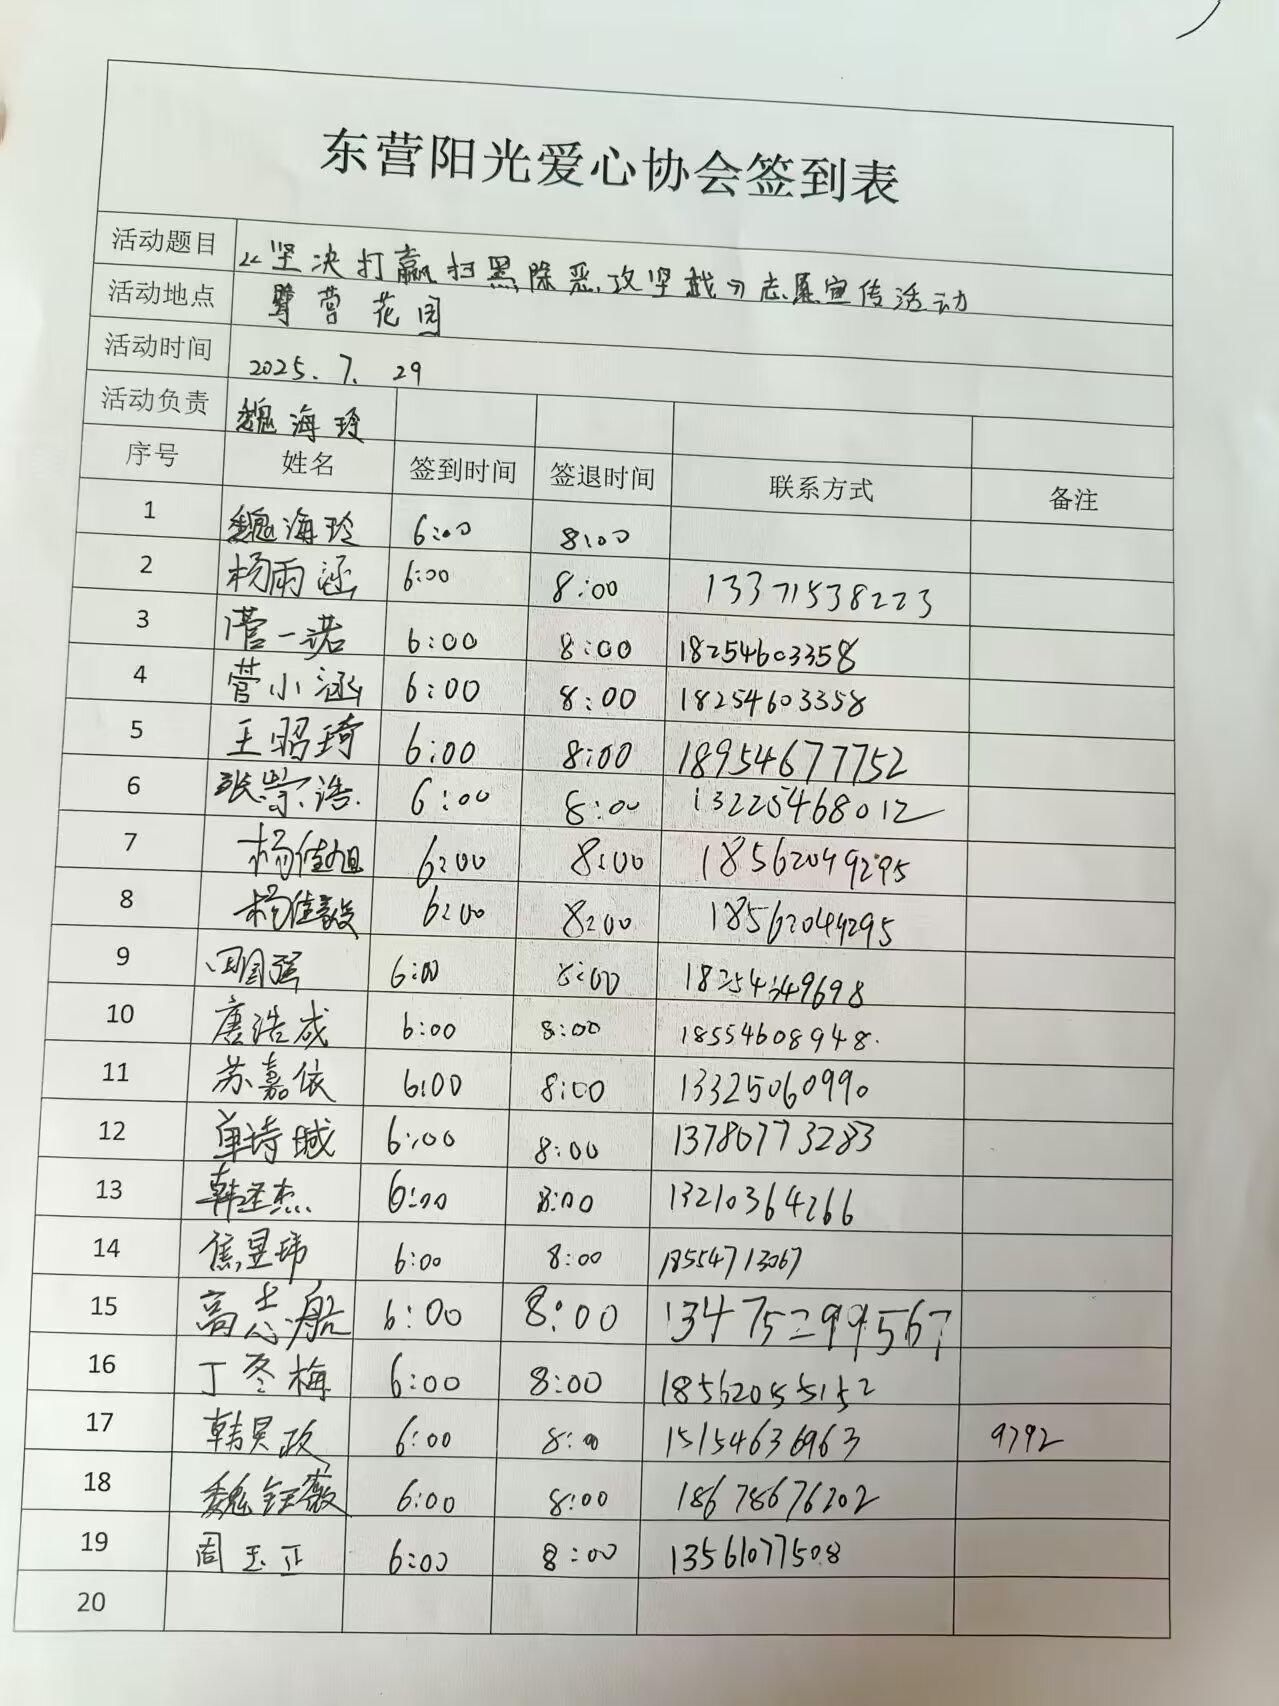 东营阳光爱心协会签到表
活动题目 “坚决打赢扫黑除恶攻坚战”志愿宣传活动
活动地点 营花园
活动时间 2025.7.29
活动负责 魏海玲
序号 姓名 签到时间 签退时间 联系方式 备注
1 魏海玲 6:00 8:00
2 杨雨涵 6:00 8:00 13371538223
3 一诺 6:00 8:00 18254603358
4 小涵 6:00 8:00 18254603358
5 王昭琦 6:00 8:00 18954677752
6 张崇浩 6:00 8:00 13225468012
7 杨佳旭 6:00 8:00 18562049295
8 杨佳毅 6:00 8:00 18562049295
9 田国强 6:00 8:00
10 唐浩成 6:00 8:00 18554608948
11 苏嘉依 6:00 8:00 13325060990
12 单诗 6:00 8:00 13780773283
13 韩圣杰 6:00 8:00 13210364266
14 焦昱玮 6:00 8:00 18554713067
15 高志航 6:00 8:00 13475299567
16 丁冬梅 6:00 8:00 18562055152
17 韩昊政 6:00 8:00 15154636963 9792
18 魏钰薇 6:00 8:00 18678676202
19 周玉正 6:00 8:00 13561077508
20